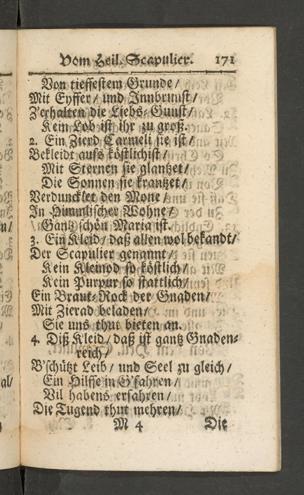 Vom Heil. Scapulier. 171
Von tieffestem Grunde /
Mit Eyffer / und Innbrunst /
Z'erhalten die Liebs-Gunst /
Kein Lob ist ihr zu groß.
2. Ein Zierd Carmeli sie ist /
Bekleidt auffs köstlichist /
Mit Sternen sie glantzet /
Die Sonnen sie krantzet /
Verduncklet den Mone /
In Himmlischer Wohne /
Gantz schön Maria ist.
3. Ein Kleid / daß allen wol bekandt /
Der Scapulier genannt /
Kein Kleinod so köstlich /
Kein Purpur so stattlich /
Ein Braut-Rock der Gnaden /
Mit Zierad beladen /
Sie uns thut bieten an.
4. Diß Kleid / daß ist gantz Gnaden-
reich /
B'schützt Leib / und Seel zu gleich /
Ein Hilffe in G'fahren /
Vil habens erfahren /
Die Tugend thut mehren /
M 4 Die
al /